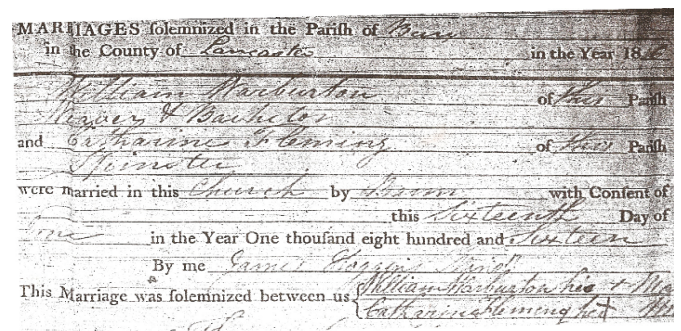 MARRIAGES ſolemnized in the Pariſh of Bury
in the County of Lancaster in the Year 18
William Warburton of this Pariſh
Weaver & Bachelor
and Catharine Fleming of this Pariſh
Spinster
were married in this Church by Banns with Conſent of
this Sixteenth Day of
June in the Year One thouſand eight hundred and Sixteen
By me James
This Marriage was ſolemnized between us William Warburton his + Ma
Catharine Fleming her +